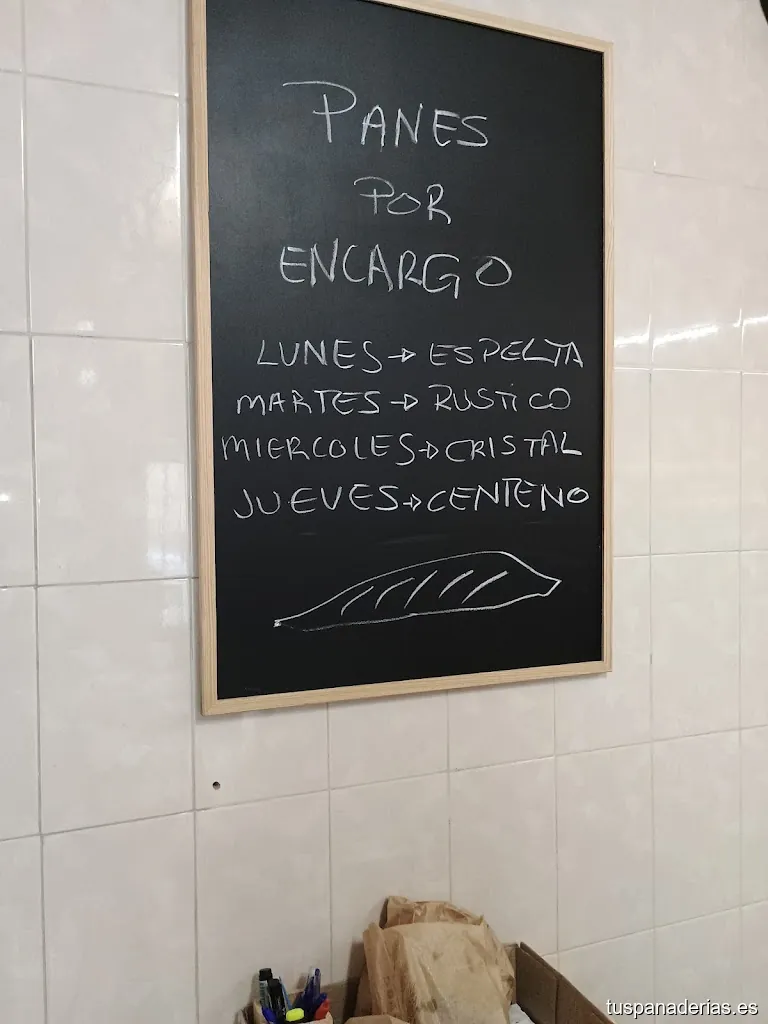 PANES
POR
ENCARGO
LUNES → ESPELTA
MARTES → RUSTiCO
MIERCOLES → CRISTAL
JUEVES → CENTENO
tuspanaderias.es